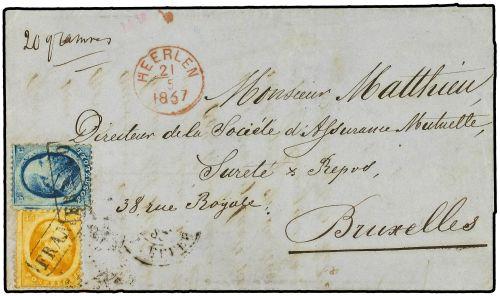 20 grammes
HEERLEN
21
5
1867
Monsieur Matthieu
Directeur de la Société d'Assurance Mutuelle,
Sureté & Repos,
38, rue Royale,
Bruxelles
FRANCO